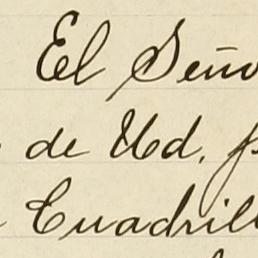 El Seño
de Ud. p
Cuadrill